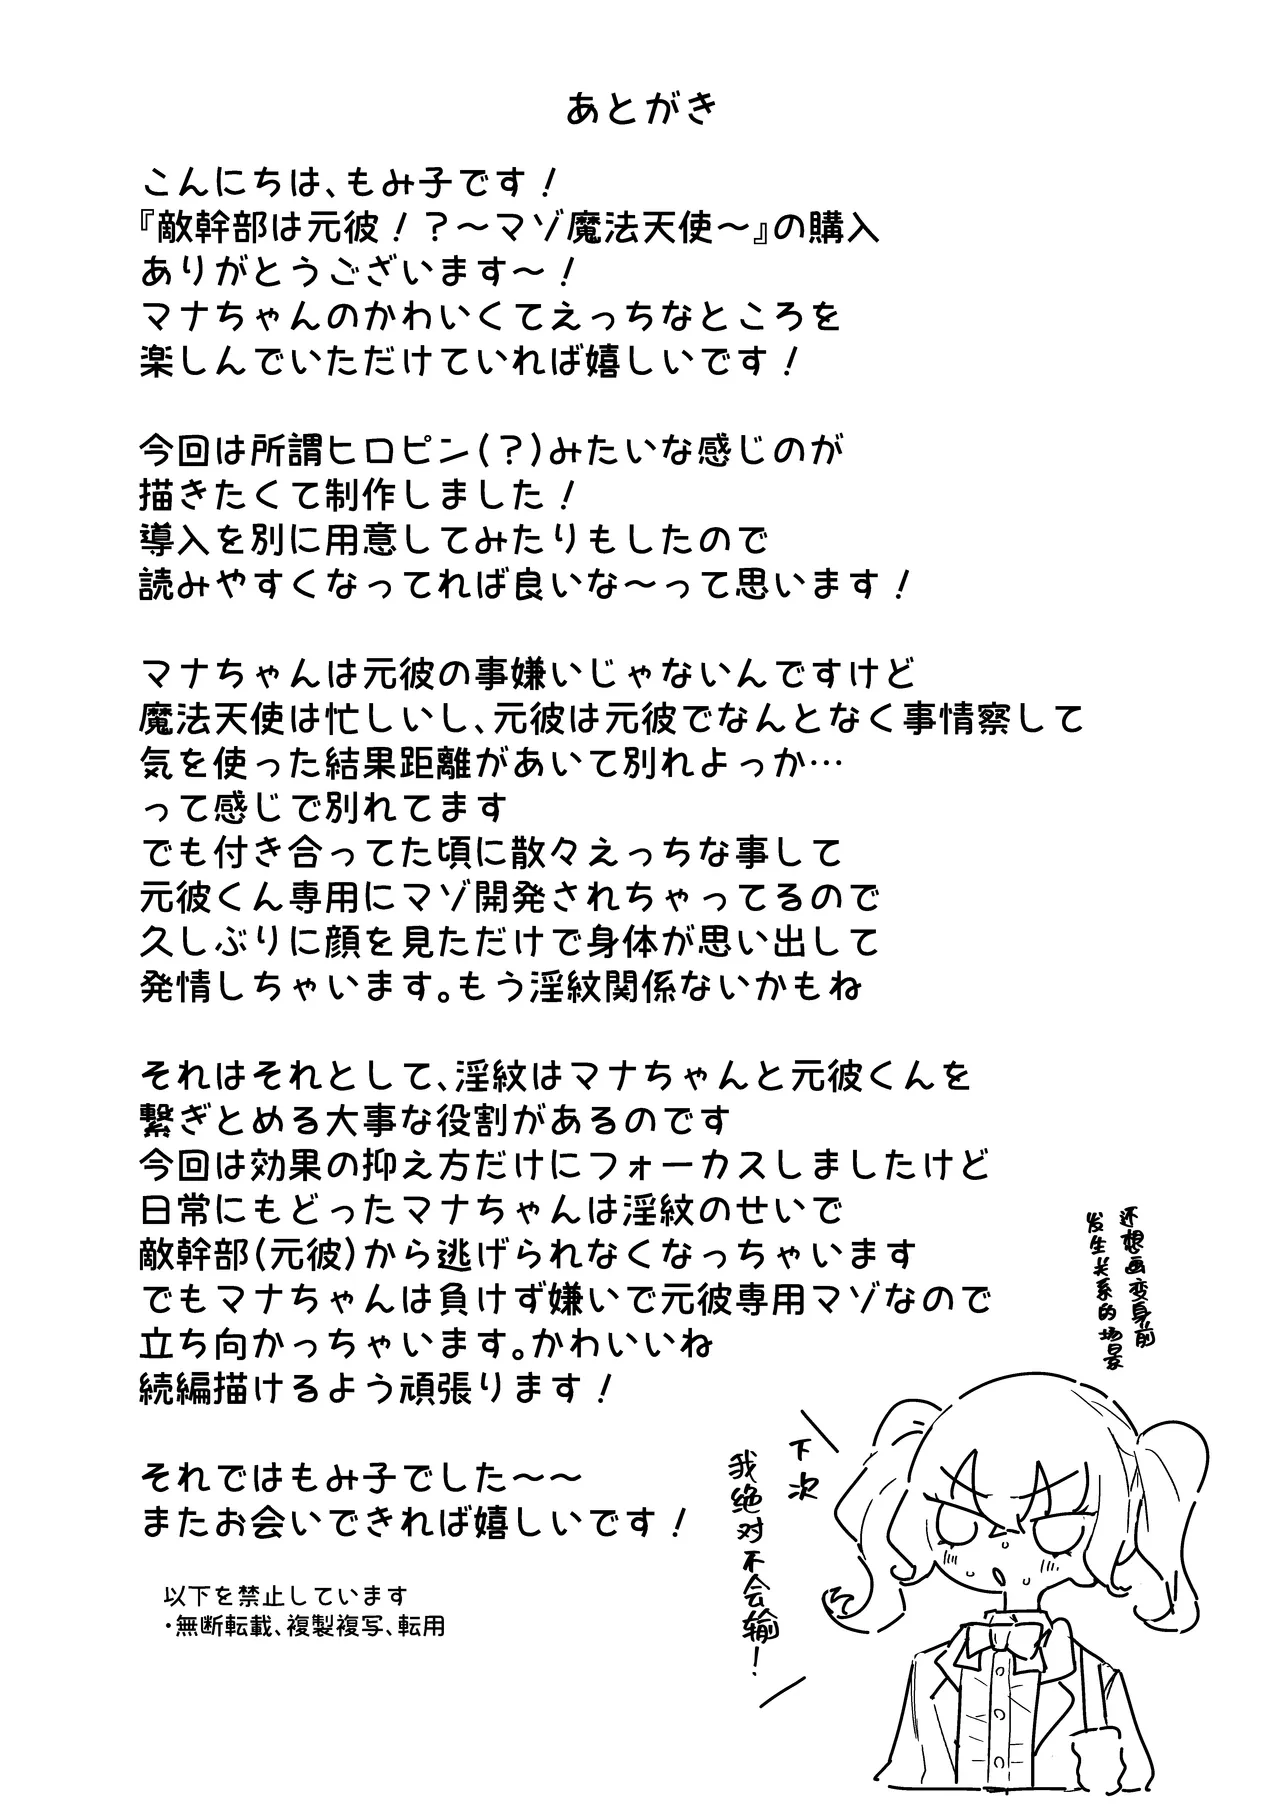 あとがき
こんにちは、もみ子です！
『敵幹部は元彼！？～マゾ魔法天使～』の購入
ありがとうございます～！
マナちゃんのかわいくてえっちなところを
楽しんでいただけていれば嬉しいです！
今回は所謂ヒロピン(？)みたいな感じのが
描きたくて制作しました！
導入を別に用意してみたりもしたので
読みやすくなってれば良いな～って思います！
マナちゃんは元彼の事嫌いじゃないんですけど
魔法天使は忙しいし、元彼は元彼でなんとなく事情察して
気を使った結果距離があいて別れよっか…
って感じで別れてます
でも付き合ってた頃に散々えっちな事して
元彼くん専用にマゾ開発されちゃってるので
久しぶりに顔を見ただけで身体が思い出して
発情しちゃいます。もう淫紋関係ないかもね
それはそれとして、淫紋はマナちゃんと元彼くんを
繋ぎとめる大事な役割があるのです
今回は効果の抑え方だけにフォーカスしましたけど
日常にもどったマナちゃんは淫紋のせいで
敵幹部(元彼)から逃げられなくなっちゃいます
でもマナちゃんは負けず嫌いで元彼専用マゾなので
立ち向かっちゃいます。かわいいね
続編描けるよう頑張ります！
それではもみ子でした～～
またお会いできれば嬉しいです！
以下を禁止しています
・無断転載、複製複写、転用
还想画变身前
发生关系的场景
下次
我绝对不会输！